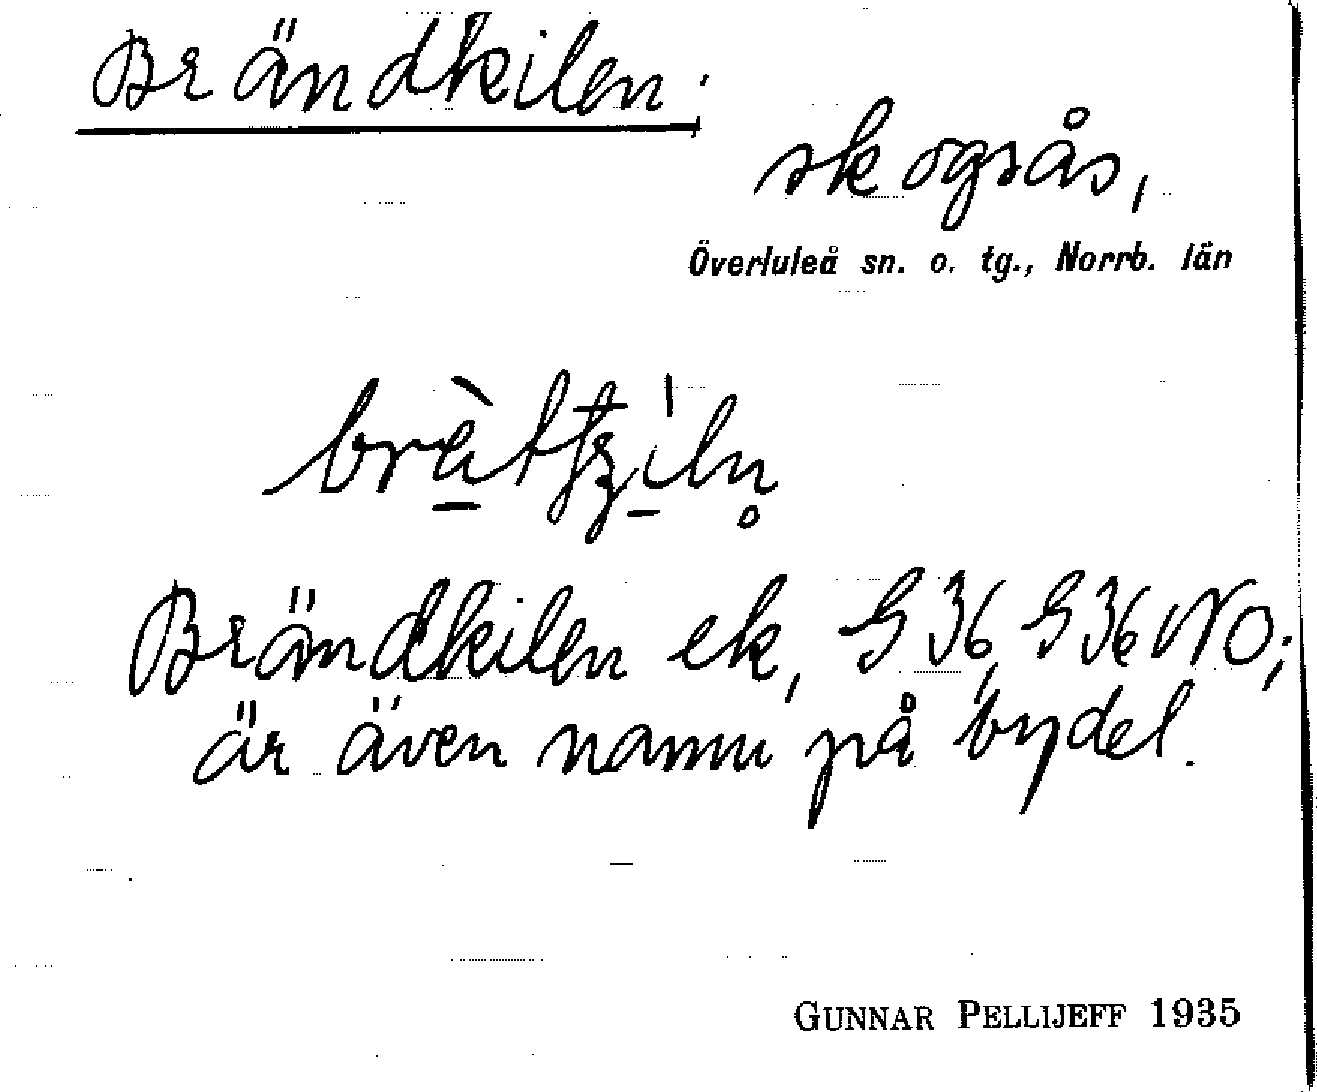 Brändkilen.
skogsås,
Överluleå sn. o. tg., Norrb. län
Brändkilen ek, G 36, G 36 NO;
är även namn på bydel.
GUNNAR PELLIJEFF 1935